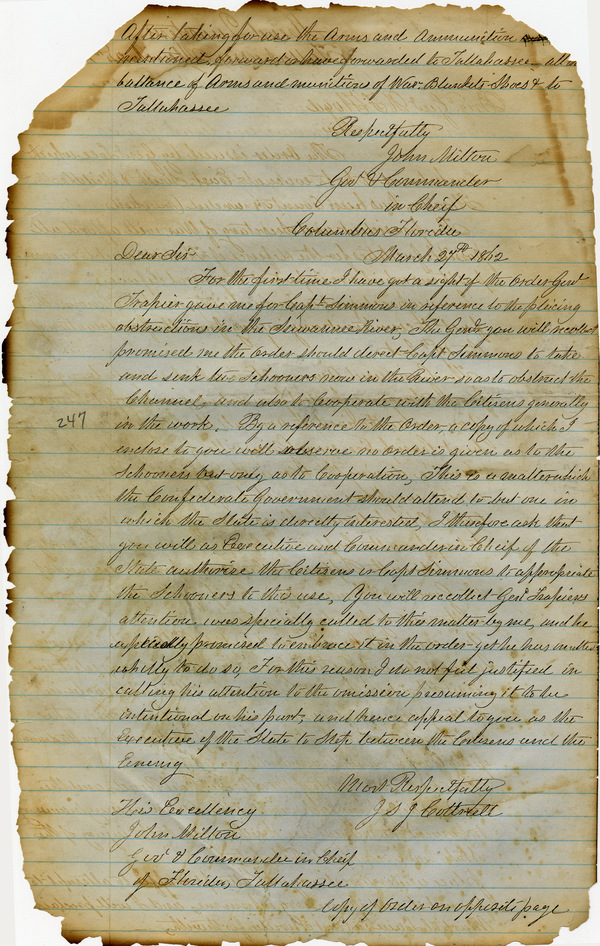 After taking for use the Arms and Ammunition
mentioned, forward or have forwarded to Tallahassee all
ballance of Arms and munitions of War. Blankets Shoes & to
Tallahassee
Respectfully
John Milton
Gov & Commander
in Cheif
Columbus Florida
Dear Sir March 27th 1862
For the first time I have got a sight of the order Genl
Trapier gave me for Capt Simmons in reference to the placing
obstructions in the Suwannee River, The Genl you will recollect
promised me the order should direct Capt Simmons to take
and sink two Schooners now in the River so as to obstruct the
Channel, and also to Cooperate with the Citizens generally
in the work. By a reference to the order, a copy of which I
247
enclose to you will observe no order is given as to the
Schooners but only as to Cooperation, This is a matter which
the Confederate Government should attend to but one in
which the State is directly interested, I therefore ask that
you will as Executive and Commander in Cheif of the
State authorise the Citizens or Capt Simmons to appropriate
the Schooners to this use, You will recollect Genl Trapiers
attention was specially called to this matter by me, and he
promised to embrace it in the order yet he has
wholly to do so, For this reason I do not feel justified in
calling his attention to the omission presuming it to be
intentional on his part, and hence appeal to you as the
Executive of the State to Step between the Citizens and the
Enemy
Most Respectfully
His Excellency J S J Cottrell
John Milton
Gov & Commander in Cheif
of Florida, Tallahassee
Copy of Order on opposite page